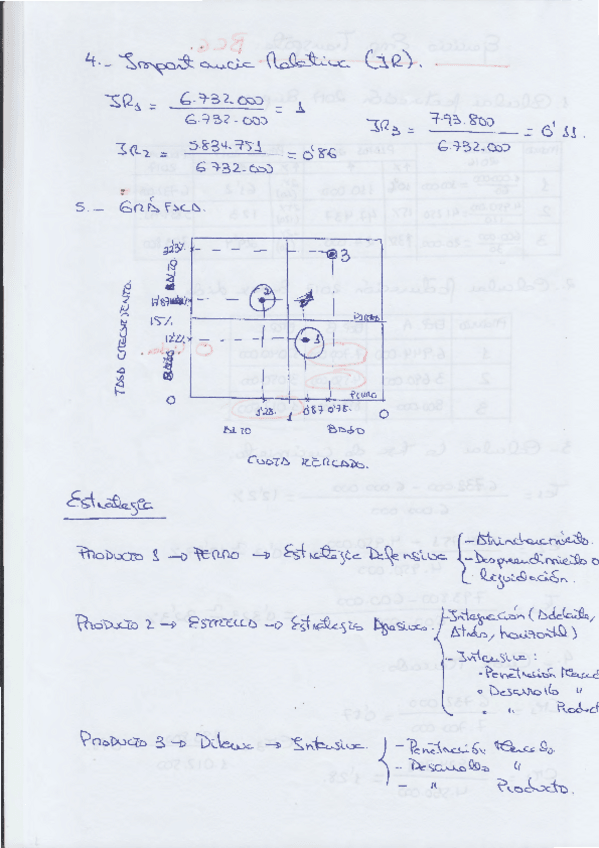 4.- Importancia Relativa (IR).
IR1 = 6.732.000 / 6.732.000 = 1
IR3 = 793.800 / 6.732.000 = 0'11.
IR2 = 5834.751 / 6.732.000 = 0'86
5.- GRÁFICO.
TASA CRECIMIENTO.
ALTO
BAJO
22'3%
3
2
15%
PERRO
12'2%
1
0
1'28.
1
0'87
0'78.
0
ALTO
BAJO
CUOTA MERCADO.
Estrategia
PRODUCTO 1 → PERRO → Estrategia Defensiva
- Atrincheramiento.
- Desprendimiento o
liquidación.
PRODUCTO 2 → ESTRELLA → Estrategia Agresiva.
- Integración (Adelante,
Atrás, horizontal)
- Intensiva:
• Penetración Mercado
• Desarrollo "
• " Producto
PRODUCTO 3 → Dilema → Intensiva.
- Penetración Mercado.
- Desarrollo "
- " Producto.